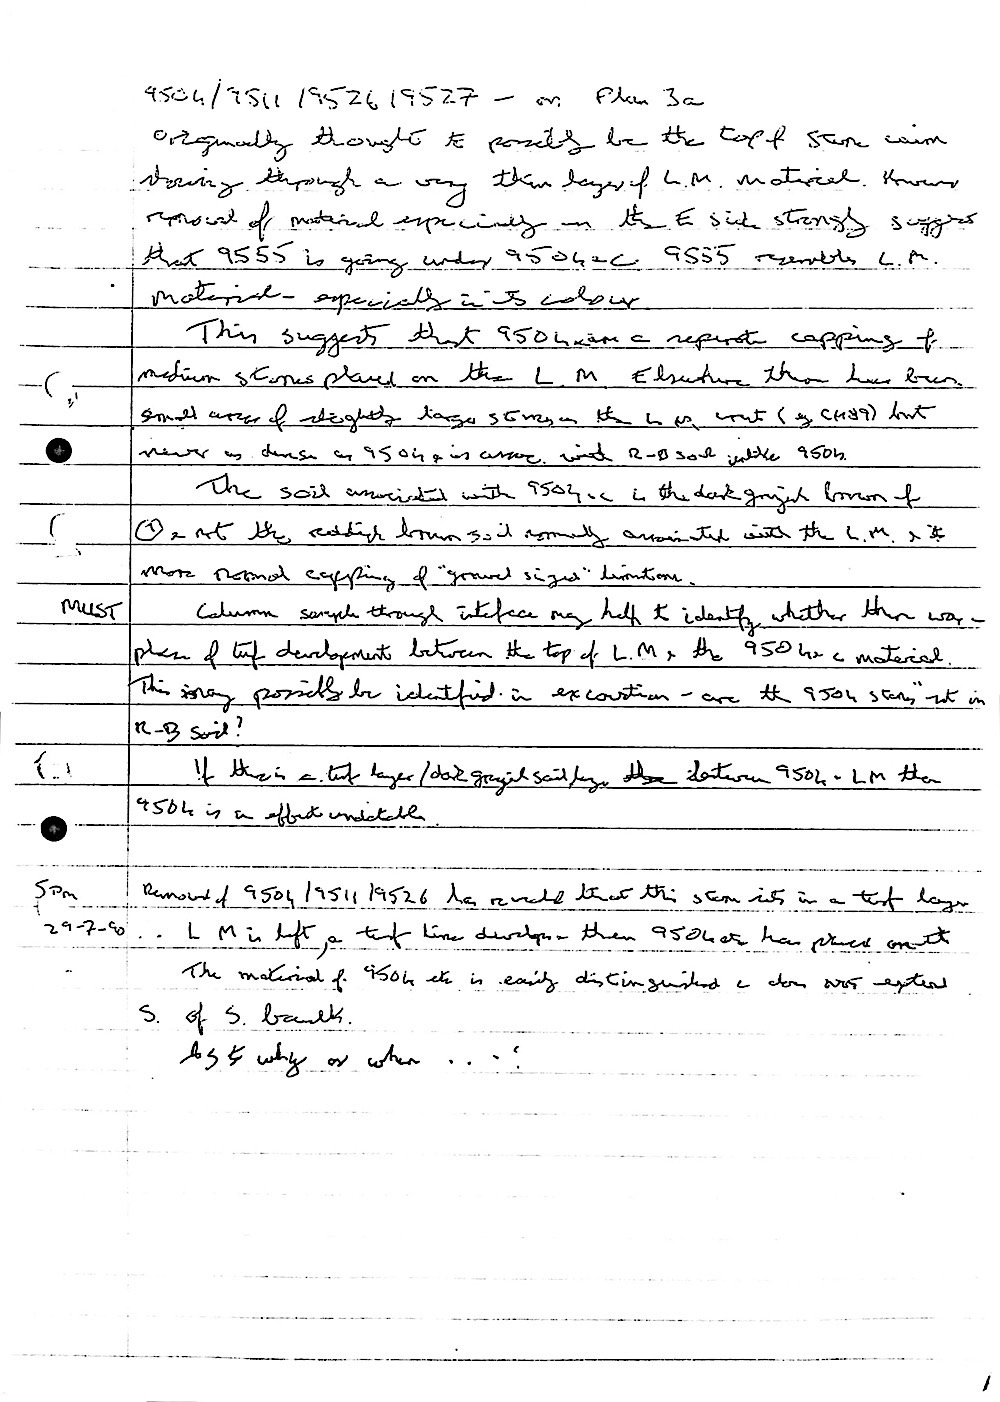 9504/9511/9526/9527 - on Plan 3a
Originally thought to possibly be the top of stone cairn
showing through a very thin layer of L.M. material. However
removal of material especially on the E side strongly suggests
that 9555 is going under 9504 etc. 9555 resembles L.M.
material - especially in its colour.
This suggests that 9504 are a separate capping of
medium stones placed on the L.M. Elsewhere there has been
small areas of slightly larger stones in the L.M. (eg CH89) but
never as dense as 9504 & is assoc. with R-B soil unlike 9504.
The soil associated with 9504 etc is the dark greyish brown of
① & not the reddish brown soil normally associated with the L.M. & its
more normal capping of "gravel sized" limestone.
MUST Column sample through interface may help to identify whether there was a
phase of turf development between the top of L.M. & the 9504 etc material.
This may possibly be identified in excavation - are the 9504 stones set in
R-B soil?
If there is a turf layer/dark greyish soil layer between 9504 & LM then
9504 is in effect undatable.
5pm Removal of 9504/9511/9526 has revealed that this stone sits in a turf layer
29-7-90 .. LM is left, a turf line develops then 9504 etc has placed on it
The material of 9504 etc is easily distinguished & does not extend
S. of S. baulk.
as to why or when ....?
1